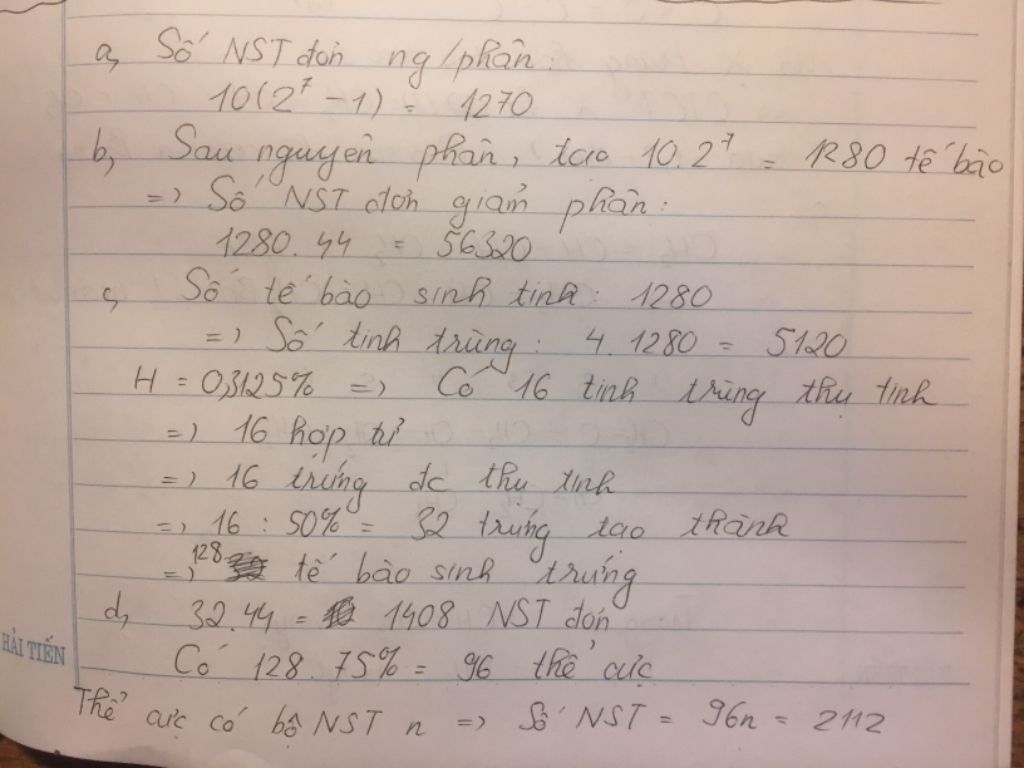 a, Số NST đơn ng/phân:
10(2⁷ - 1) = 1270
b, Sau nguyên phân, tạo 10.2⁷ = 1280 tế bào
=> Số NST đơn giảm phân:
1280.44 = 56320
c, Số tế bào sinh tinh: 1280
=> Số tinh trùng: 4.1280 = 5120
H = 0,3125% => Có 16 tinh trùng thụ tinh
=> 16 hợp tử
=> 16 trứng đc thụ tinh
=> 16 : 50% = 32 trứng tạo thành
=> 128 tế bào sinh trứng
d, 32.44 = 1408 NST đơn
HẢI TIẾN
Có 128.75% = 96 thể cực
Thể cực có bộ NST n => Số NST = 96n = 2112